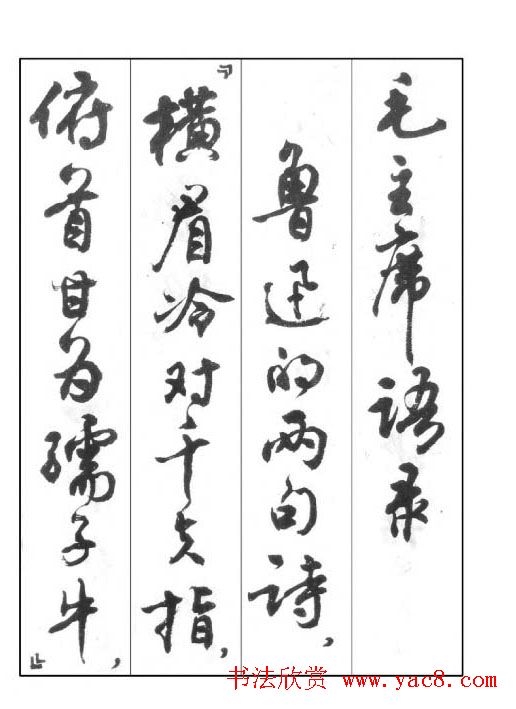 毛主席语录
鲁迅的两句诗，
『横眉冷对千夫指，
俯首甘为孺子牛，』
书法欣赏 www.yac8.com